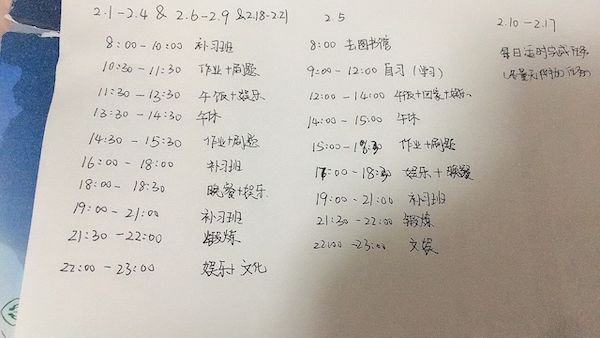 2.1-2.4 & 2.6-2.9 & 2.18-2.21
8:00-10:00 补习班
10:30-11:30 作业+刷题
11:30-13:30 午饭+娱乐
13:30-14:30 午休
14:30-15:30 作业+刷题
16:00-18:00 补习班
18:00-18:30 晚餐+娱乐
19:00-21:00 补习班
21:30-22:00 锻炼
22:00-23:00 娱乐+文化
2.5
8:00 去图书馆
9:00-12:00 自习(学习)
12:00-14:00 午饭+回家+娱乐
14:00-15:00 午休
15:00-18:30 作业+刷题
18:30 娱乐+晚餐
19:00-21:00 补习班
21:30-22:00 锻炼
22:00-23:00 文娱
2.10-2.17
每日适时完成任务